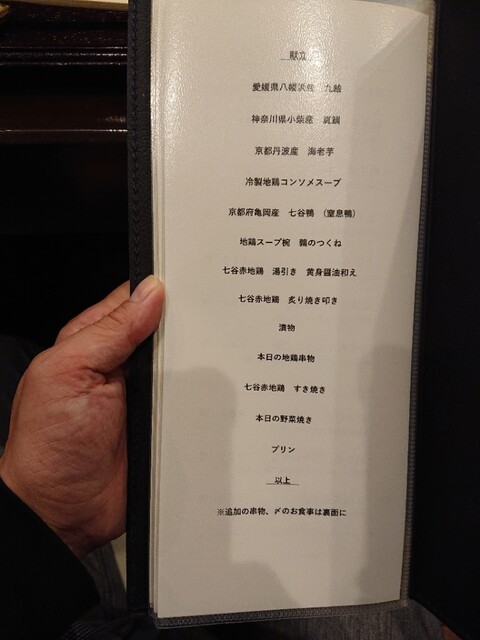 献立
愛媛県八幡浜産 九絵
神奈川県小柴産 真鯛
京都丹波産 海老芋
冷製地鶏コンソメスープ
京都府亀岡産 七谷鴨 (窒息鴨)
地鶏スープ椀 鶉のつくね
七谷赤地鶏 湯引き 黄身醤油和え
七谷赤地鶏 炙り焼き叩き
漬物
本日の地鶏串物
七谷赤地鶏 すき焼き
本日の野菜焼き
プリン
以上
※追加の串物、〆のお食事は裏面に